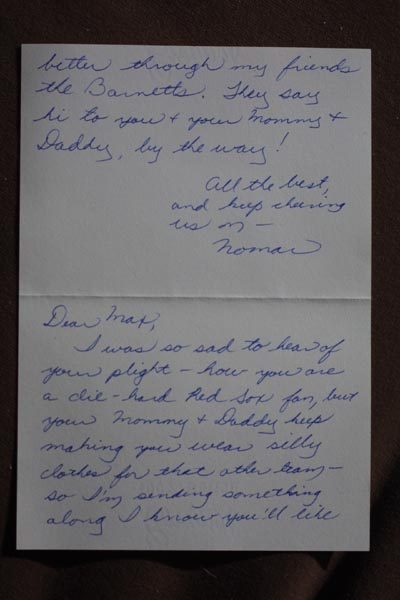 better through my friends
the Barnetts. They say
hi to you + your Mommy +
Daddy, by the way!
All the best,
and keep cheering
us on —
Nomar
Dear Max,
I was so sad to hear of
your plight — how you are
a die-hard Red Sox fan, but
your Mommy + Daddy keep
making you wear silly
clothes for that other team —
so I'm sending something
along I know you'll like